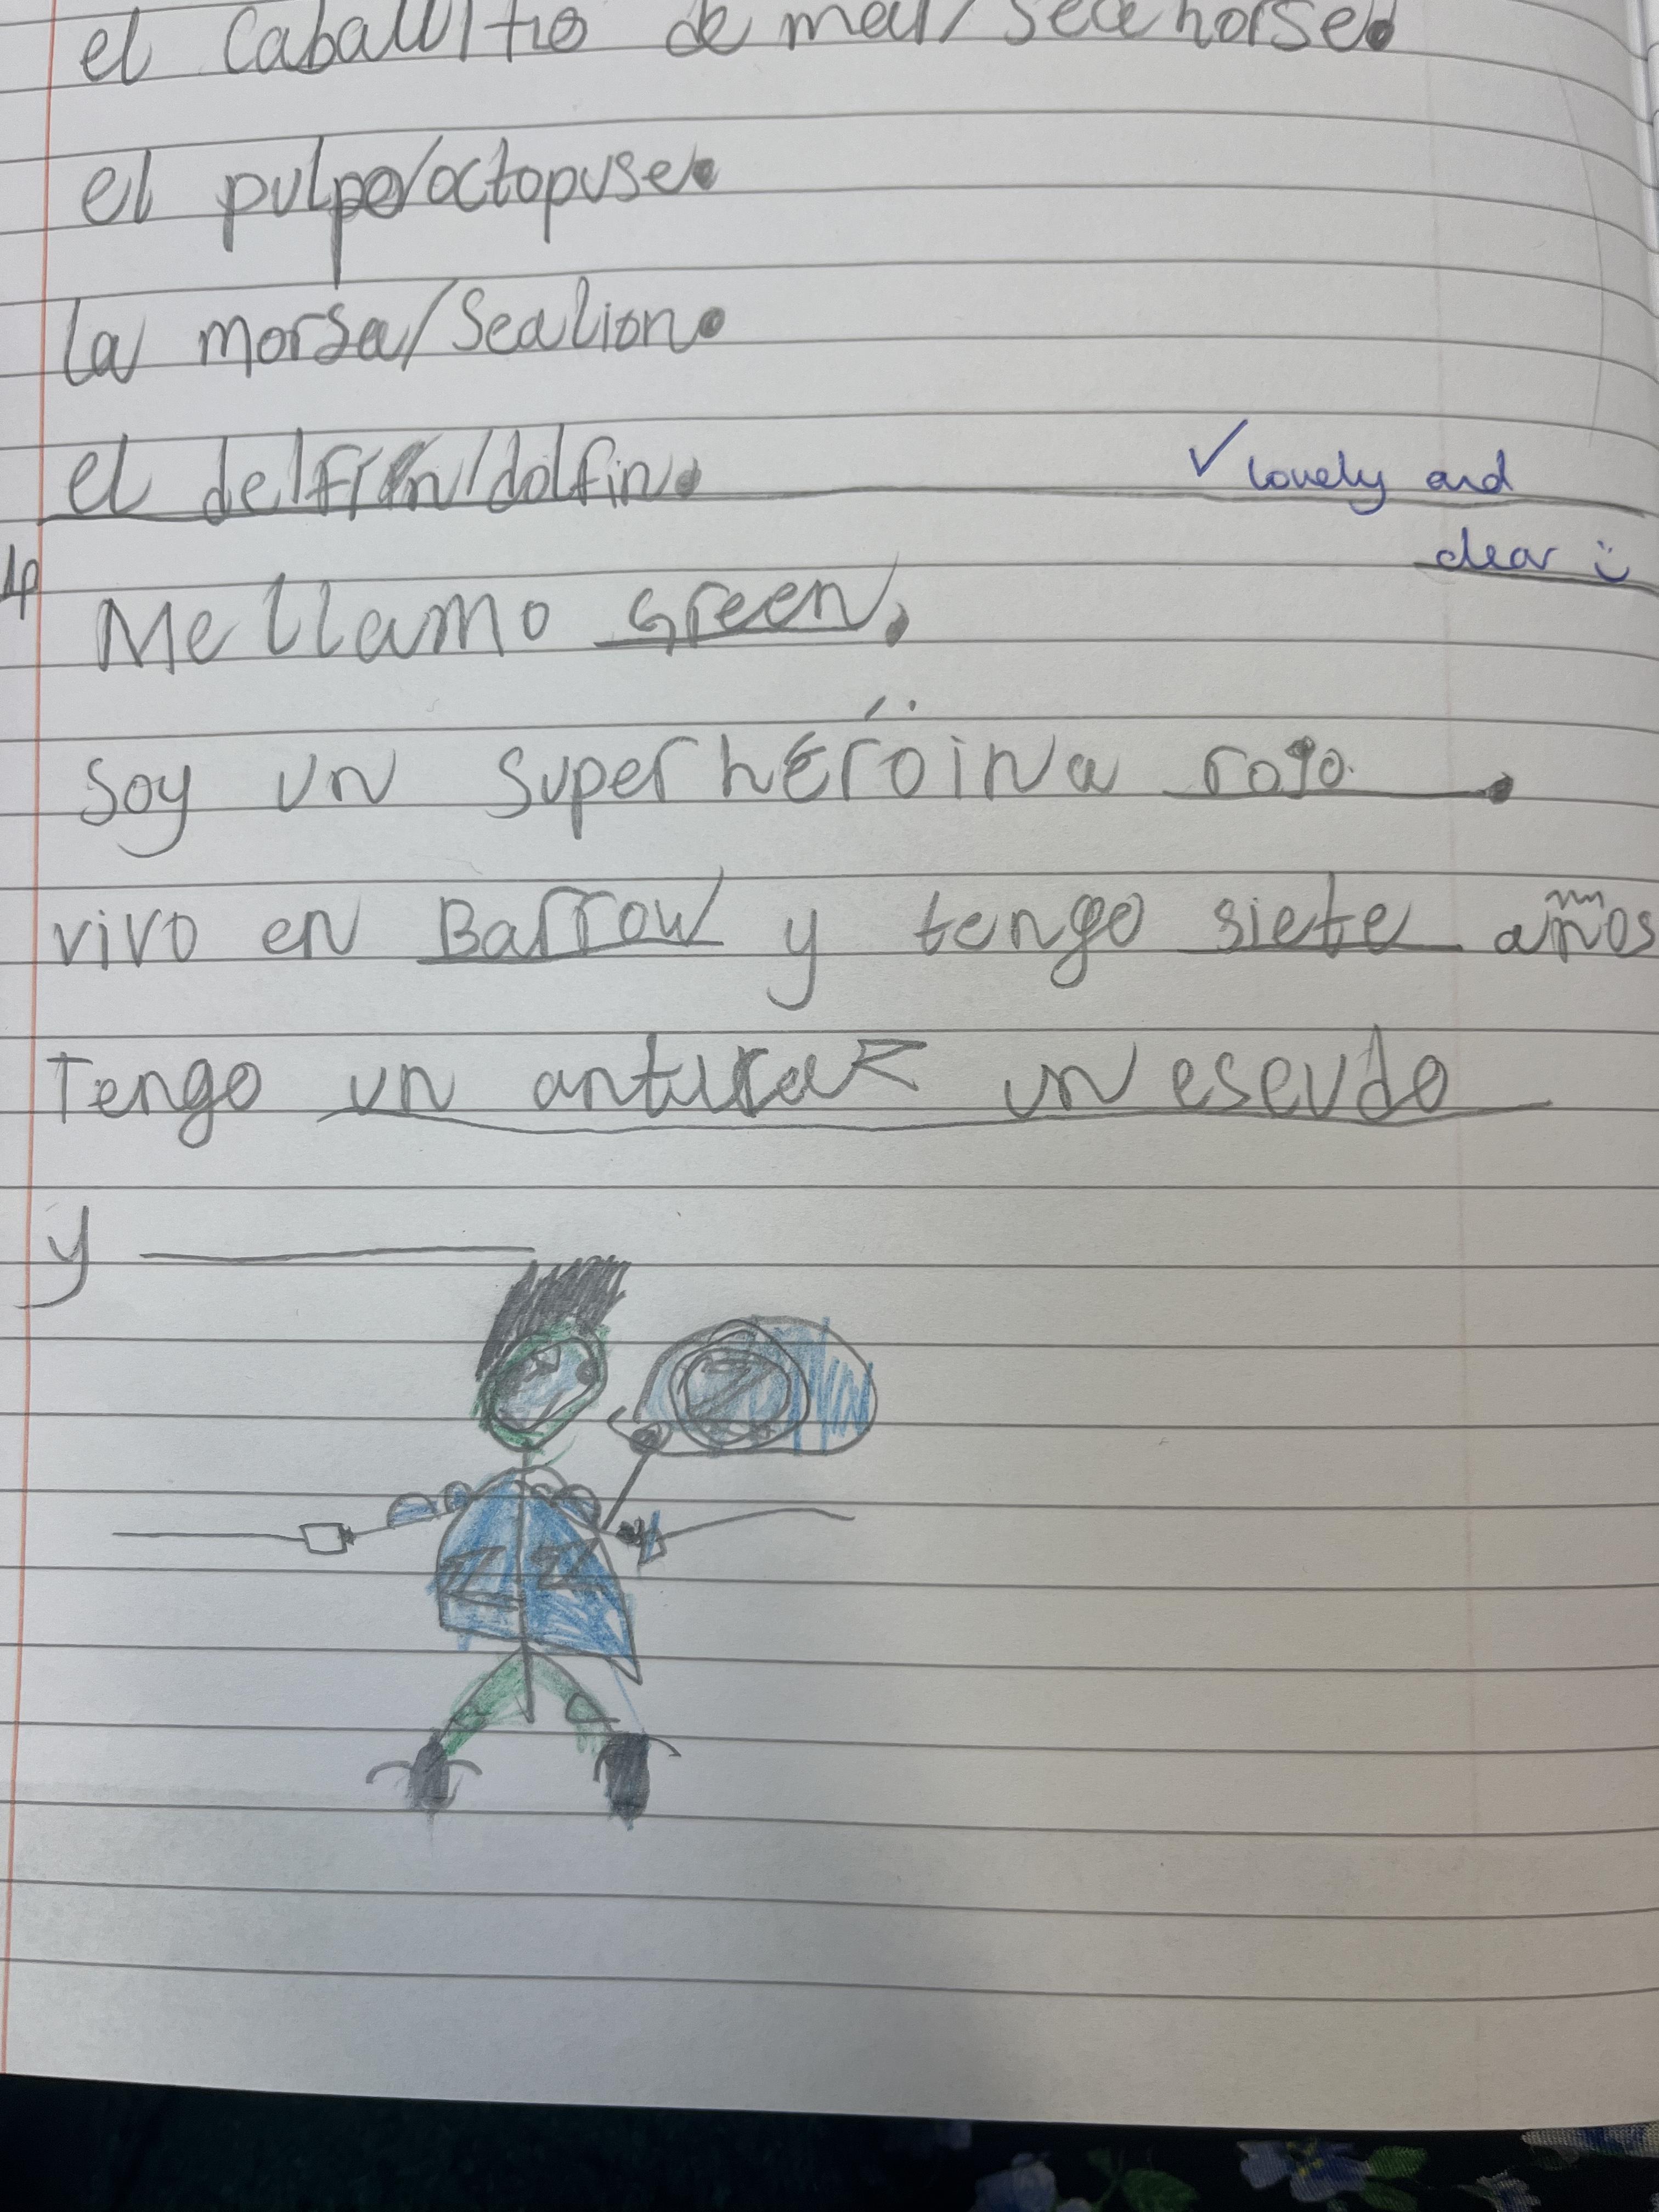 el caballito de mar/seahorse.
el pulpo/octopuse.
la morsa/sealion.
el delfin/dolfin.
✓ lovely and
clear :)
Me llamo Green.
Soy un superhéroina rojo.
vivo en Barrow y tengo siete años
Tengo un anturaz un eseudo
y